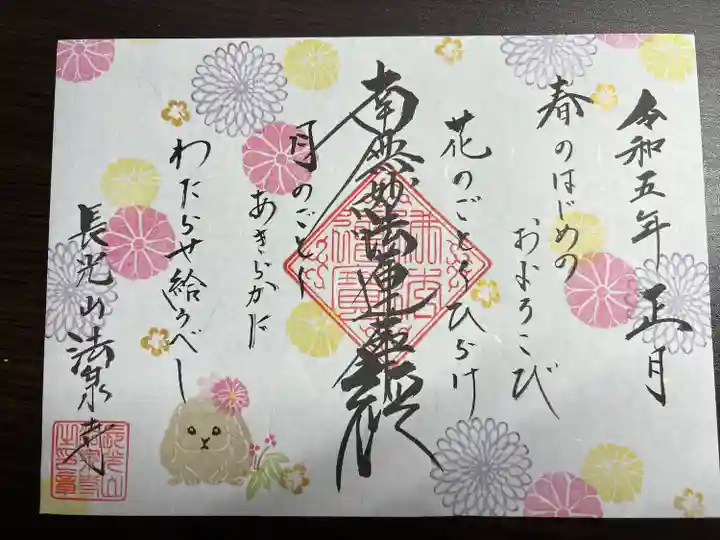 令和五年 正月
春のはじめの
およろこび
花のごとくひらけ
南無妙法蓮華経
月のごとく
あきらかに
わたらせ給うべし
長光山法泉寺